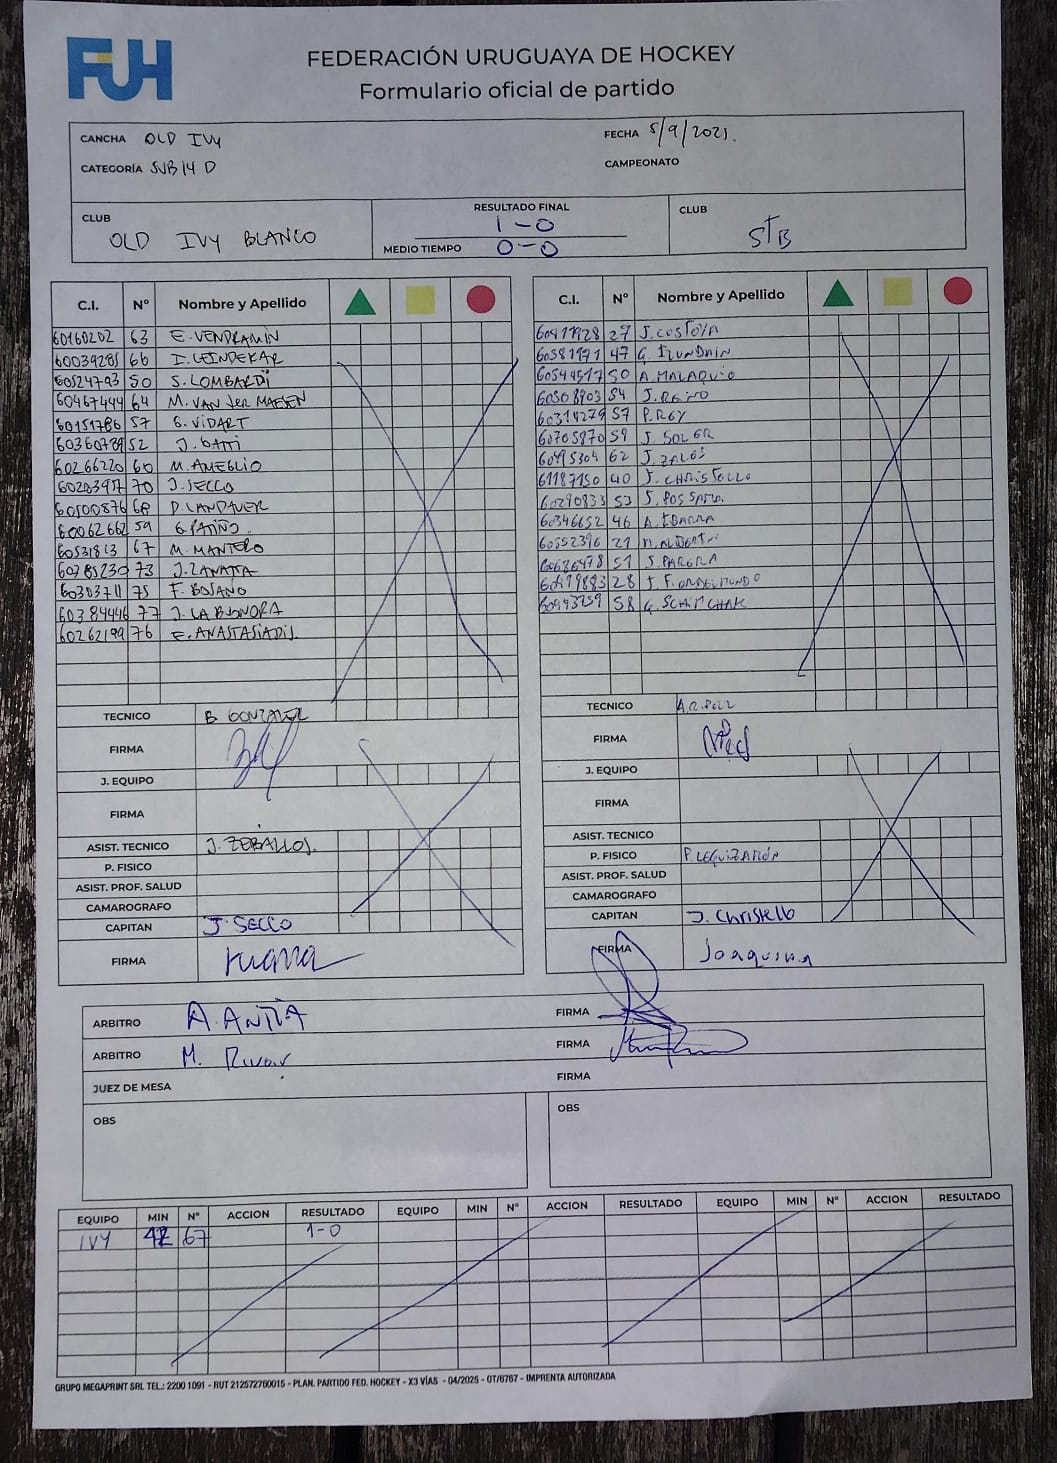 FUH
FEDERACIÓN URUGUAYA DE HOCKEY
Formulario oficial de partido
CANCHA OLD IVY FECHA 5/9/2025.
CATEGORÍA SUB 14 D CAMPEONATO
CLUB RESULTADO FINAL CLUB
OLD IVY BLANCO 1-0 STB
MEDIO TIEMPO 0-0
C.I. N° Nombre y Apellido
60160202 63 E. VENDRAMIN
60039285 66 I. LEINDEKAR
60524793 50 S. LOMBARDI
60467444 64 M. VAN DER MAESEN
60151786 57 G. VIDART
60360789 52 J. GATTI
60266220 60 M. AMEGLIO
60203917 70 J. SECCO
60500876 68 D. LANDAUER
60062662 59 G. PATIÑO
60531813 67 M. MANTERO
60785230 73 J. ZANATTA
60303711 75 F. BOSANO
60384446 77 J. LA BUONORA
60262199 76 E. ANASTASIADIS.
TECNICO B GONZALEZ
FIRMA
J. EQUIPO
FIRMA
ASIST. TECNICO J. ZEBALLOS.
P. FISICO
ASIST. PROF. SALUD
CAMAROGRAFO
CAPITAN J. SECCO
FIRMA
C.I. N° Nombre y Apellido
27 J. COSTOYA
47 G. IRUNDAIN
50 A. MALAQUIO
54
60314279 57 P. REY
60705870 59 J. SOLER
60495304 62 J. ZALOS
61187150 40 J. CHRISTELLO
60290833 53 J. POSSAMAI
60346652 46 A. IBARRA
60552396 21
51
28
58
TECNICO
FIRMA
J. EQUIPO
FIRMA
ASIST. TECNICO
P. FISICO P. LEGUIZAMÓN
ASIST. PROF. SALUD
CAMAROGRAFO
CAPITAN J. Christello
FIRMA Joaquina
ARBITRO A. ANTÍA FIRMA
ARBITRO M. FIRMA
JUEZ DE MESA FIRMA
OBS OBS
EQUIPO MIN N° ACCION RESULTADO EQUIPO MIN N° ACCION RESULTADO EQUIPO MIN N° ACCION RESULTADO
IVY 42 67 1-0
GRUPO MEGAPRINT SRL TEL.: 2200 1091 - RUT 212572760015 - PLAN. PARTIDO FED. HOCKEY - X3 VÍAS - 04/2025 - OT/6767 - IMPRENTA AUTORIZADA